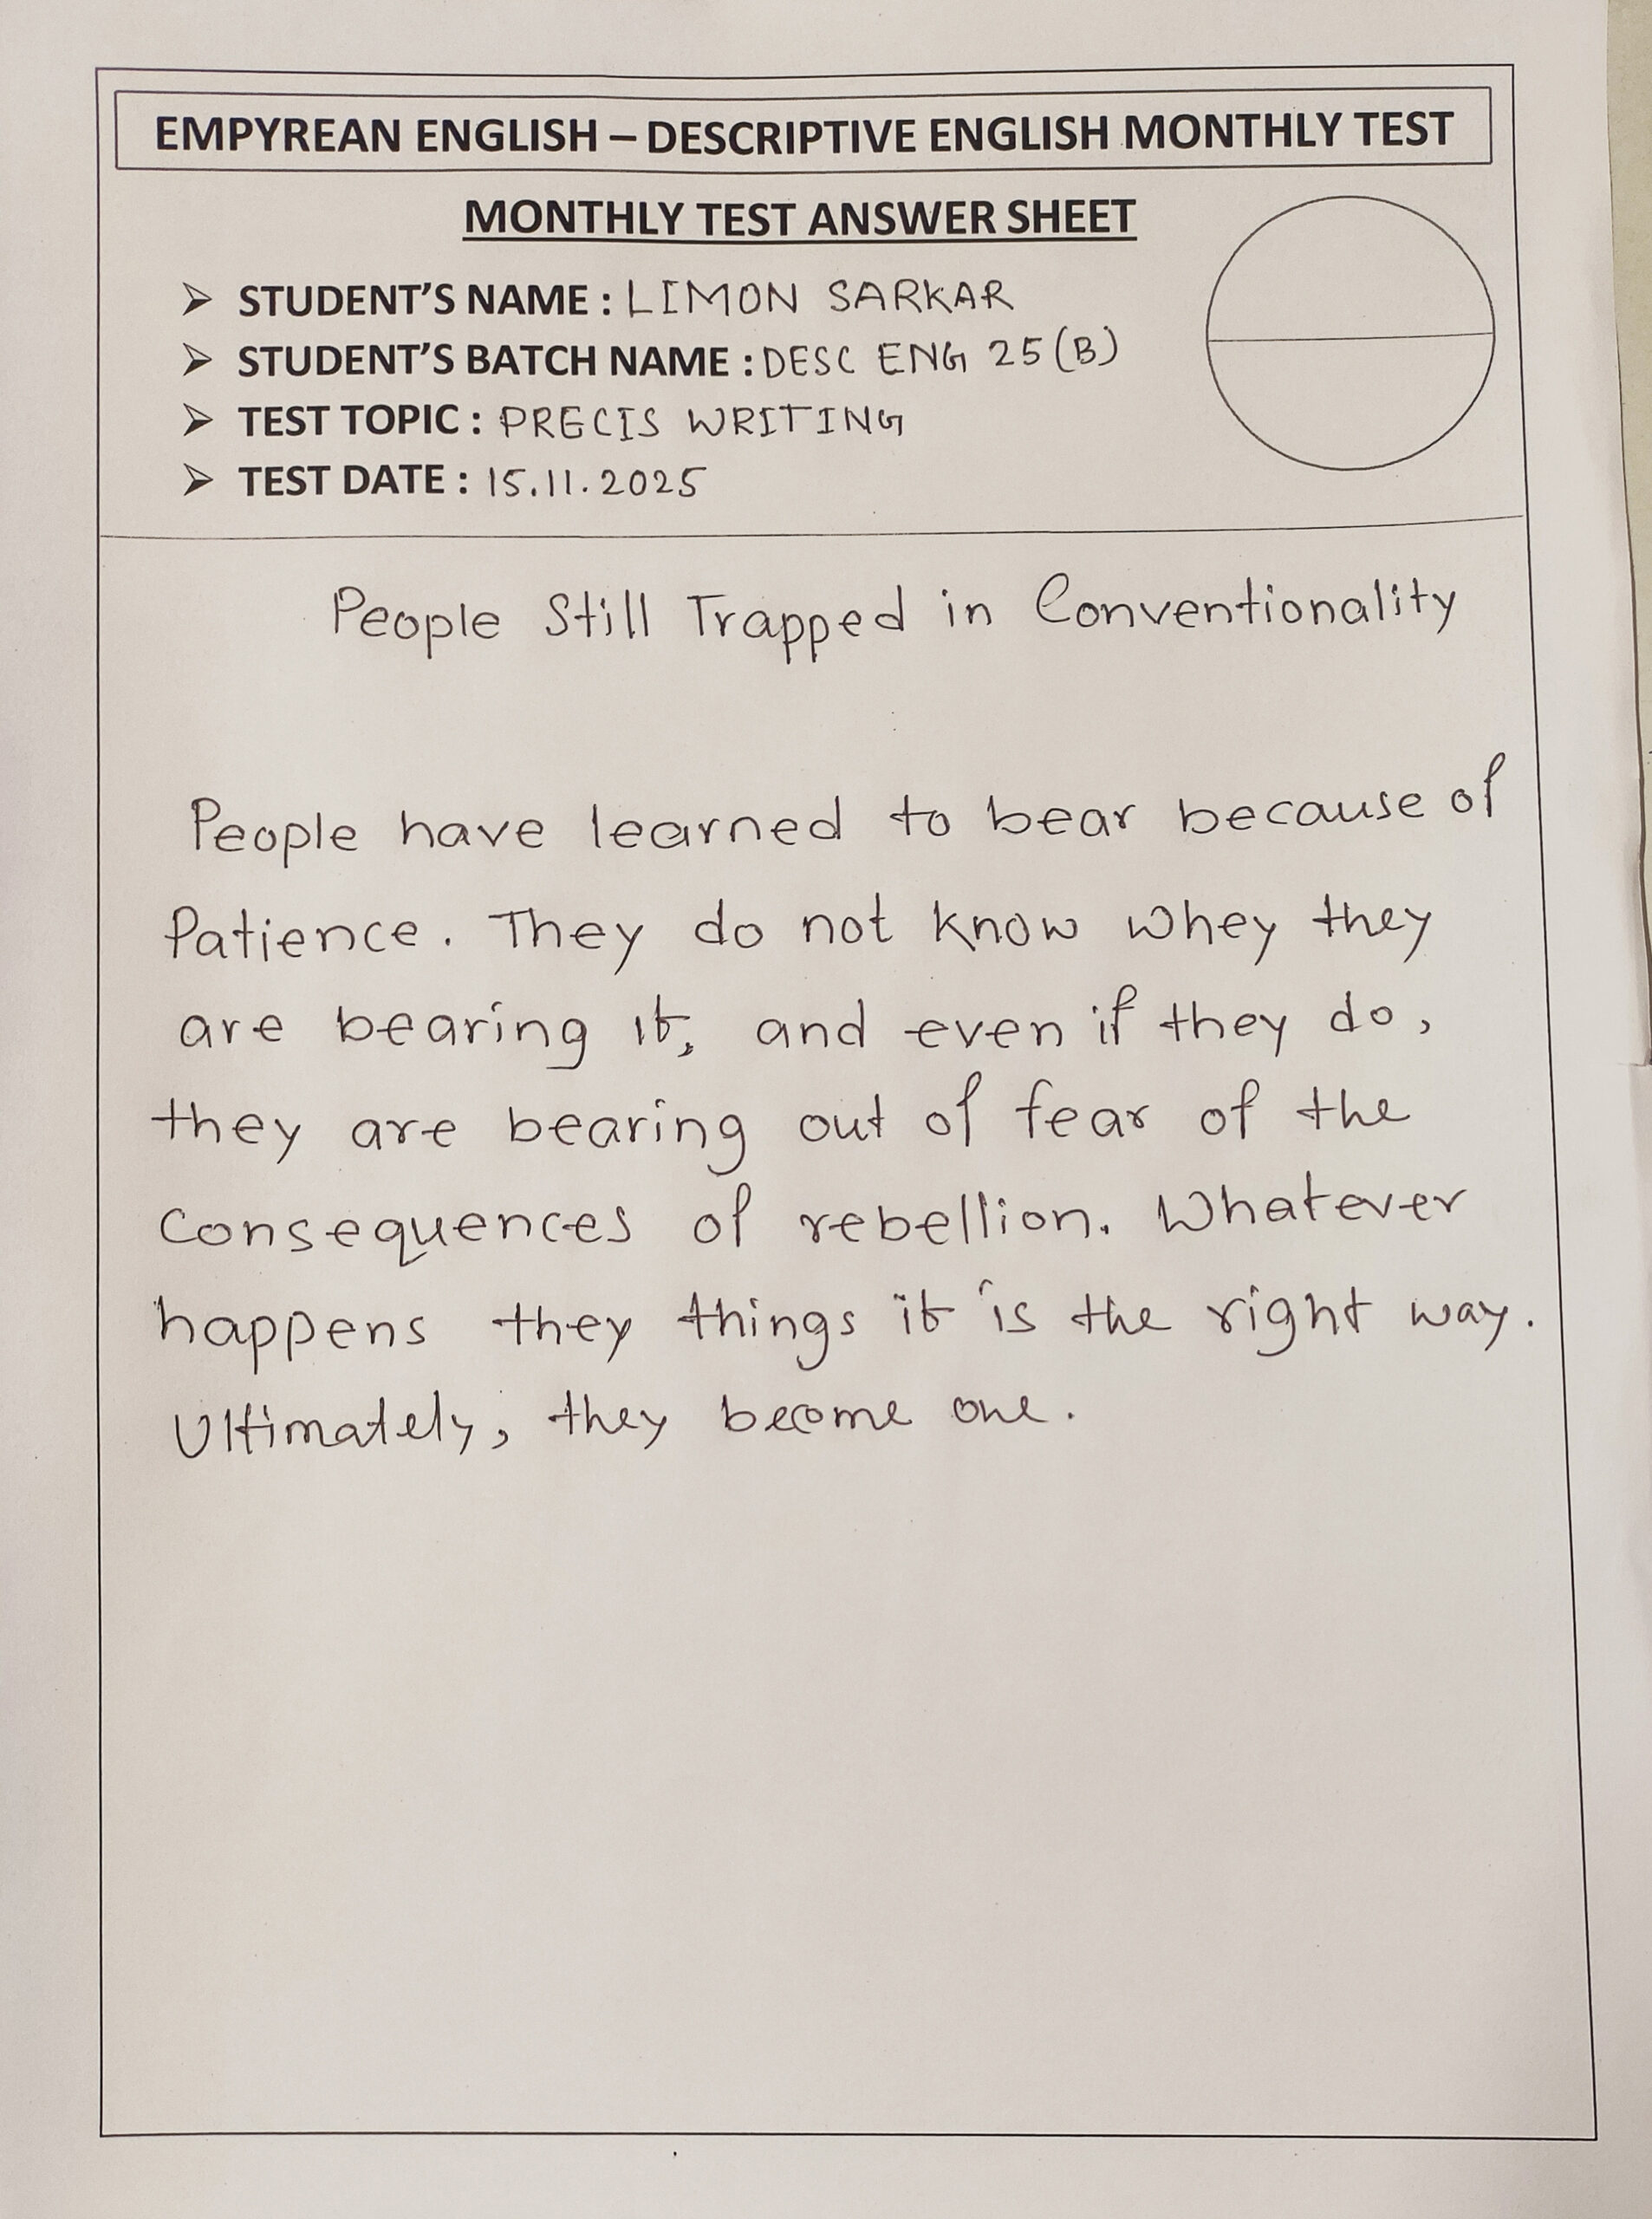 EMPYREAN ENGLISH – DESCRIPTIVE ENGLISH MONTHLY TEST
MONTHLY TEST ANSWER SHEET
➢ STUDENT'S NAME : LIMON SARKAR
➢ STUDENT'S BATCH NAME : DESC ENG 25 (B)
➢ TEST TOPIC : PRECIS WRITING
➢ TEST DATE : 15.11.2025
People Still Trapped in Conventionality
People have learned to bear because of
Patience. They do not know whey they
are bearing it, and even if they do,
they are bearing out of fear of the
consequences of rebellion. Whatever
happens they things it is the right way.
Ultimately, they become one.